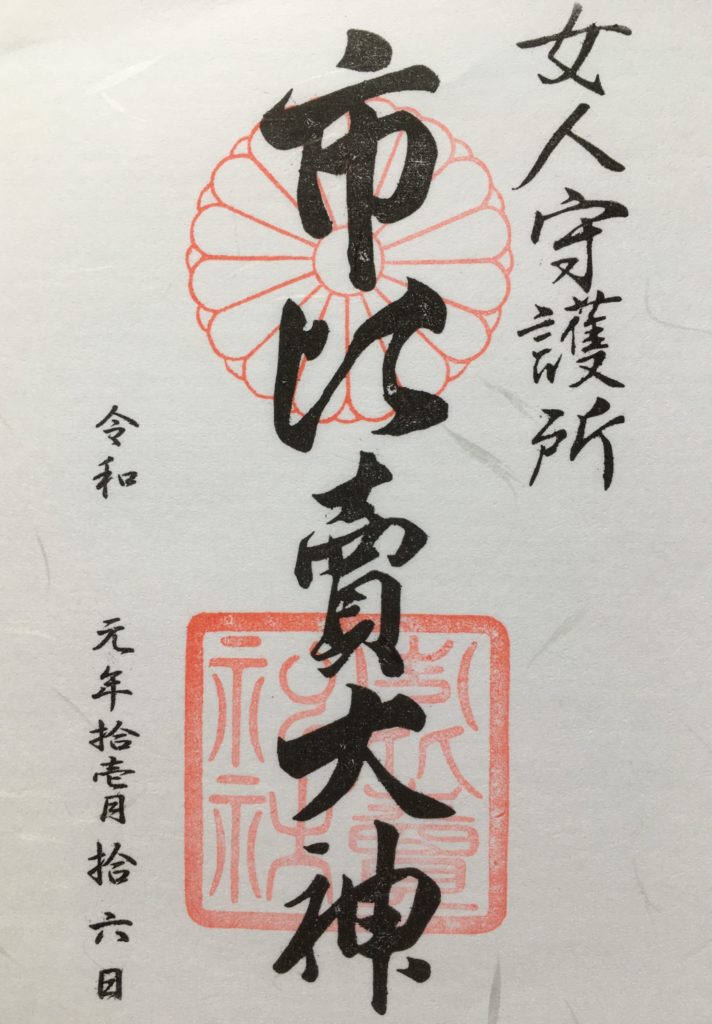 女人守護所
市比賣大神
令和 元年拾壱月拾六日